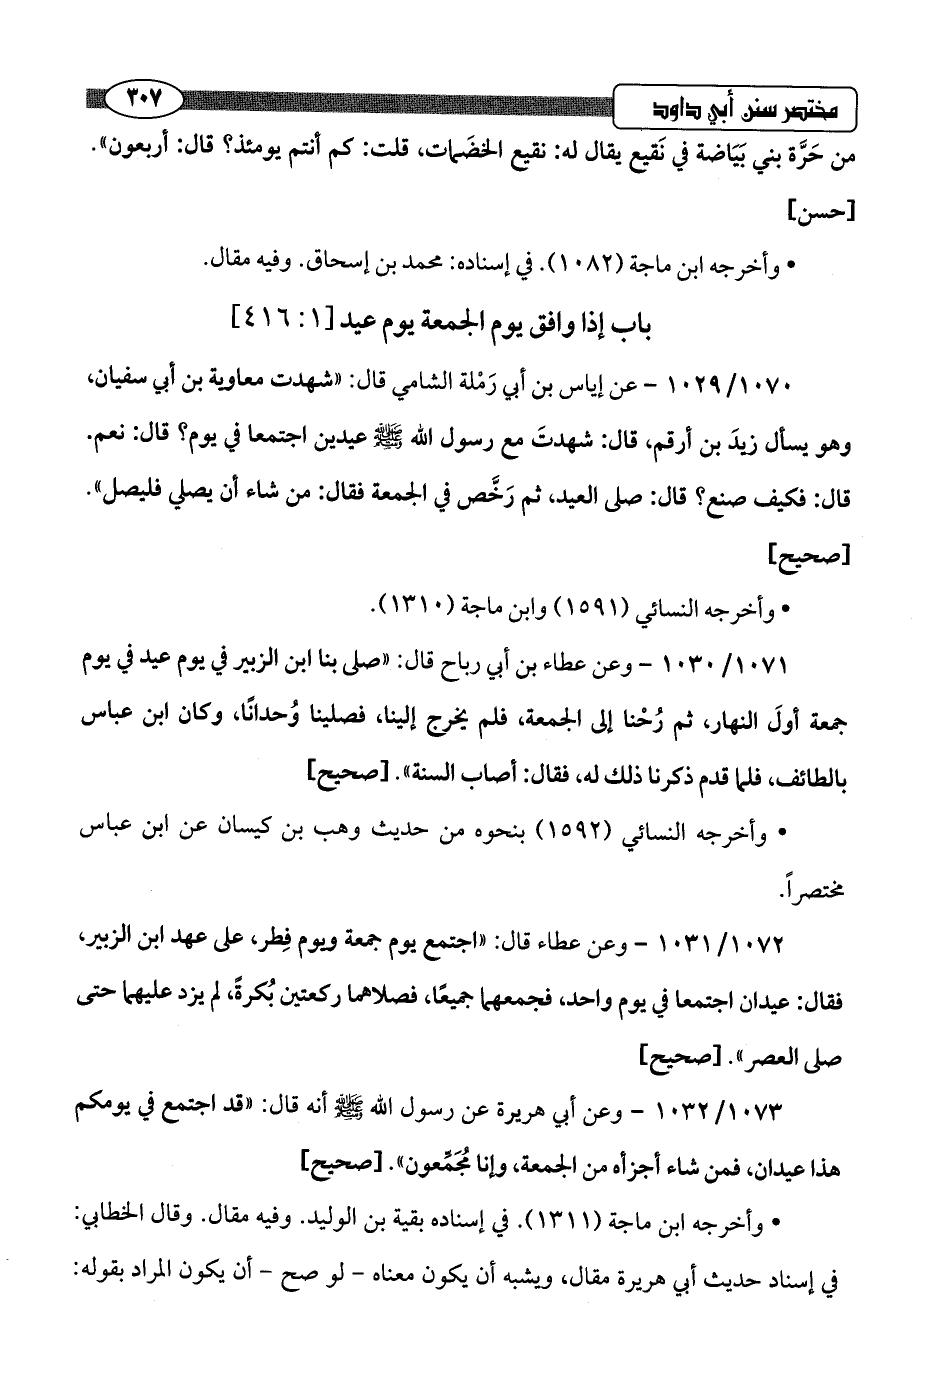 مختصر سنن أبي داود ٣٠٧
من حَرَّة بني بَيَاضة في نَقيع يقال له: نقيع الخضَمات، قلت: كم أنتم يومئذ؟ قال: أربعون».
[حسن]
• وأخرجه ابن ماجة (١٠٨٢). في إسناده: محمد بن إسحاق. وفيه مقال.
باب إذا وافق يوم الجمعة يوم عيد [١: ٤١٦]
١٠٢٩/١٠٧٠ - عن إياس بن أبي رَمْلة الشامي قال: «شهدت معاوية بن أبي سفيان،
وهو يسأل زيدَ بن أرقم، قال: شهدتَ مع رسول الله ﷺ عيدين اجتمعا في يوم؟ قال: نعم.
قال: فكيف صنع؟ قال: صلى العيد، ثم رَخَّص في الجمعة فقال: من شاء أن يصلي فليصل».
[صحيح]
• وأخرجه النسائي (١٥٩١) وابن ماجة (١٣١٠).
١٠٣٠/١٠٧١ - وعن عطاء بن أبي رباح قال: «صلى بنا ابن الزبير في يوم عيد في يوم
جمعة أولَ النهار، ثم رُحْنا إلى الجمعة، فلم يخرج إلينا، فصلينا وُحدانًا، وكان ابن عباس
بالطائف، فلما قدم ذكرنا ذلك له، فقال: أصاب السنة». [صحيح]
• وأخرجه النسائي (١٥٩٢) بنحوه من حديث وهب بن كيسان عن ابن عباس
مختصراً.
١٠٣١/١٠٧٢ - وعن عطاء قال: «اجتمع يوم جمعة ويوم فِطر، على عهد ابن الزبير،
فقال: عيدان اجتمعا في يوم واحد، فجمعهما جميعًا، فصلاهما ركعتين بُكرةً، لم يزد عليهما حتى
صلى العصر». [صحيح]
١٠٣٢/١٠٧٣ - وعن أبي هريرة عن رسول الله ﷺ أنه قال: «قد اجتمع في يومكم
هذا عيدان، فمن شاء أجزأه من الجمعة، وإنا مُجَمِّعون». [صحيح]
• وأخرجه ابن ماجة (١٣١١). في إسناده بقية بن الوليد. وفيه مقال. وقال الخطابي:
في إسناد حديث أبي هريرة مقال، ويشبه أن يكون معناه - لو صح - أن يكون المراد بقوله: